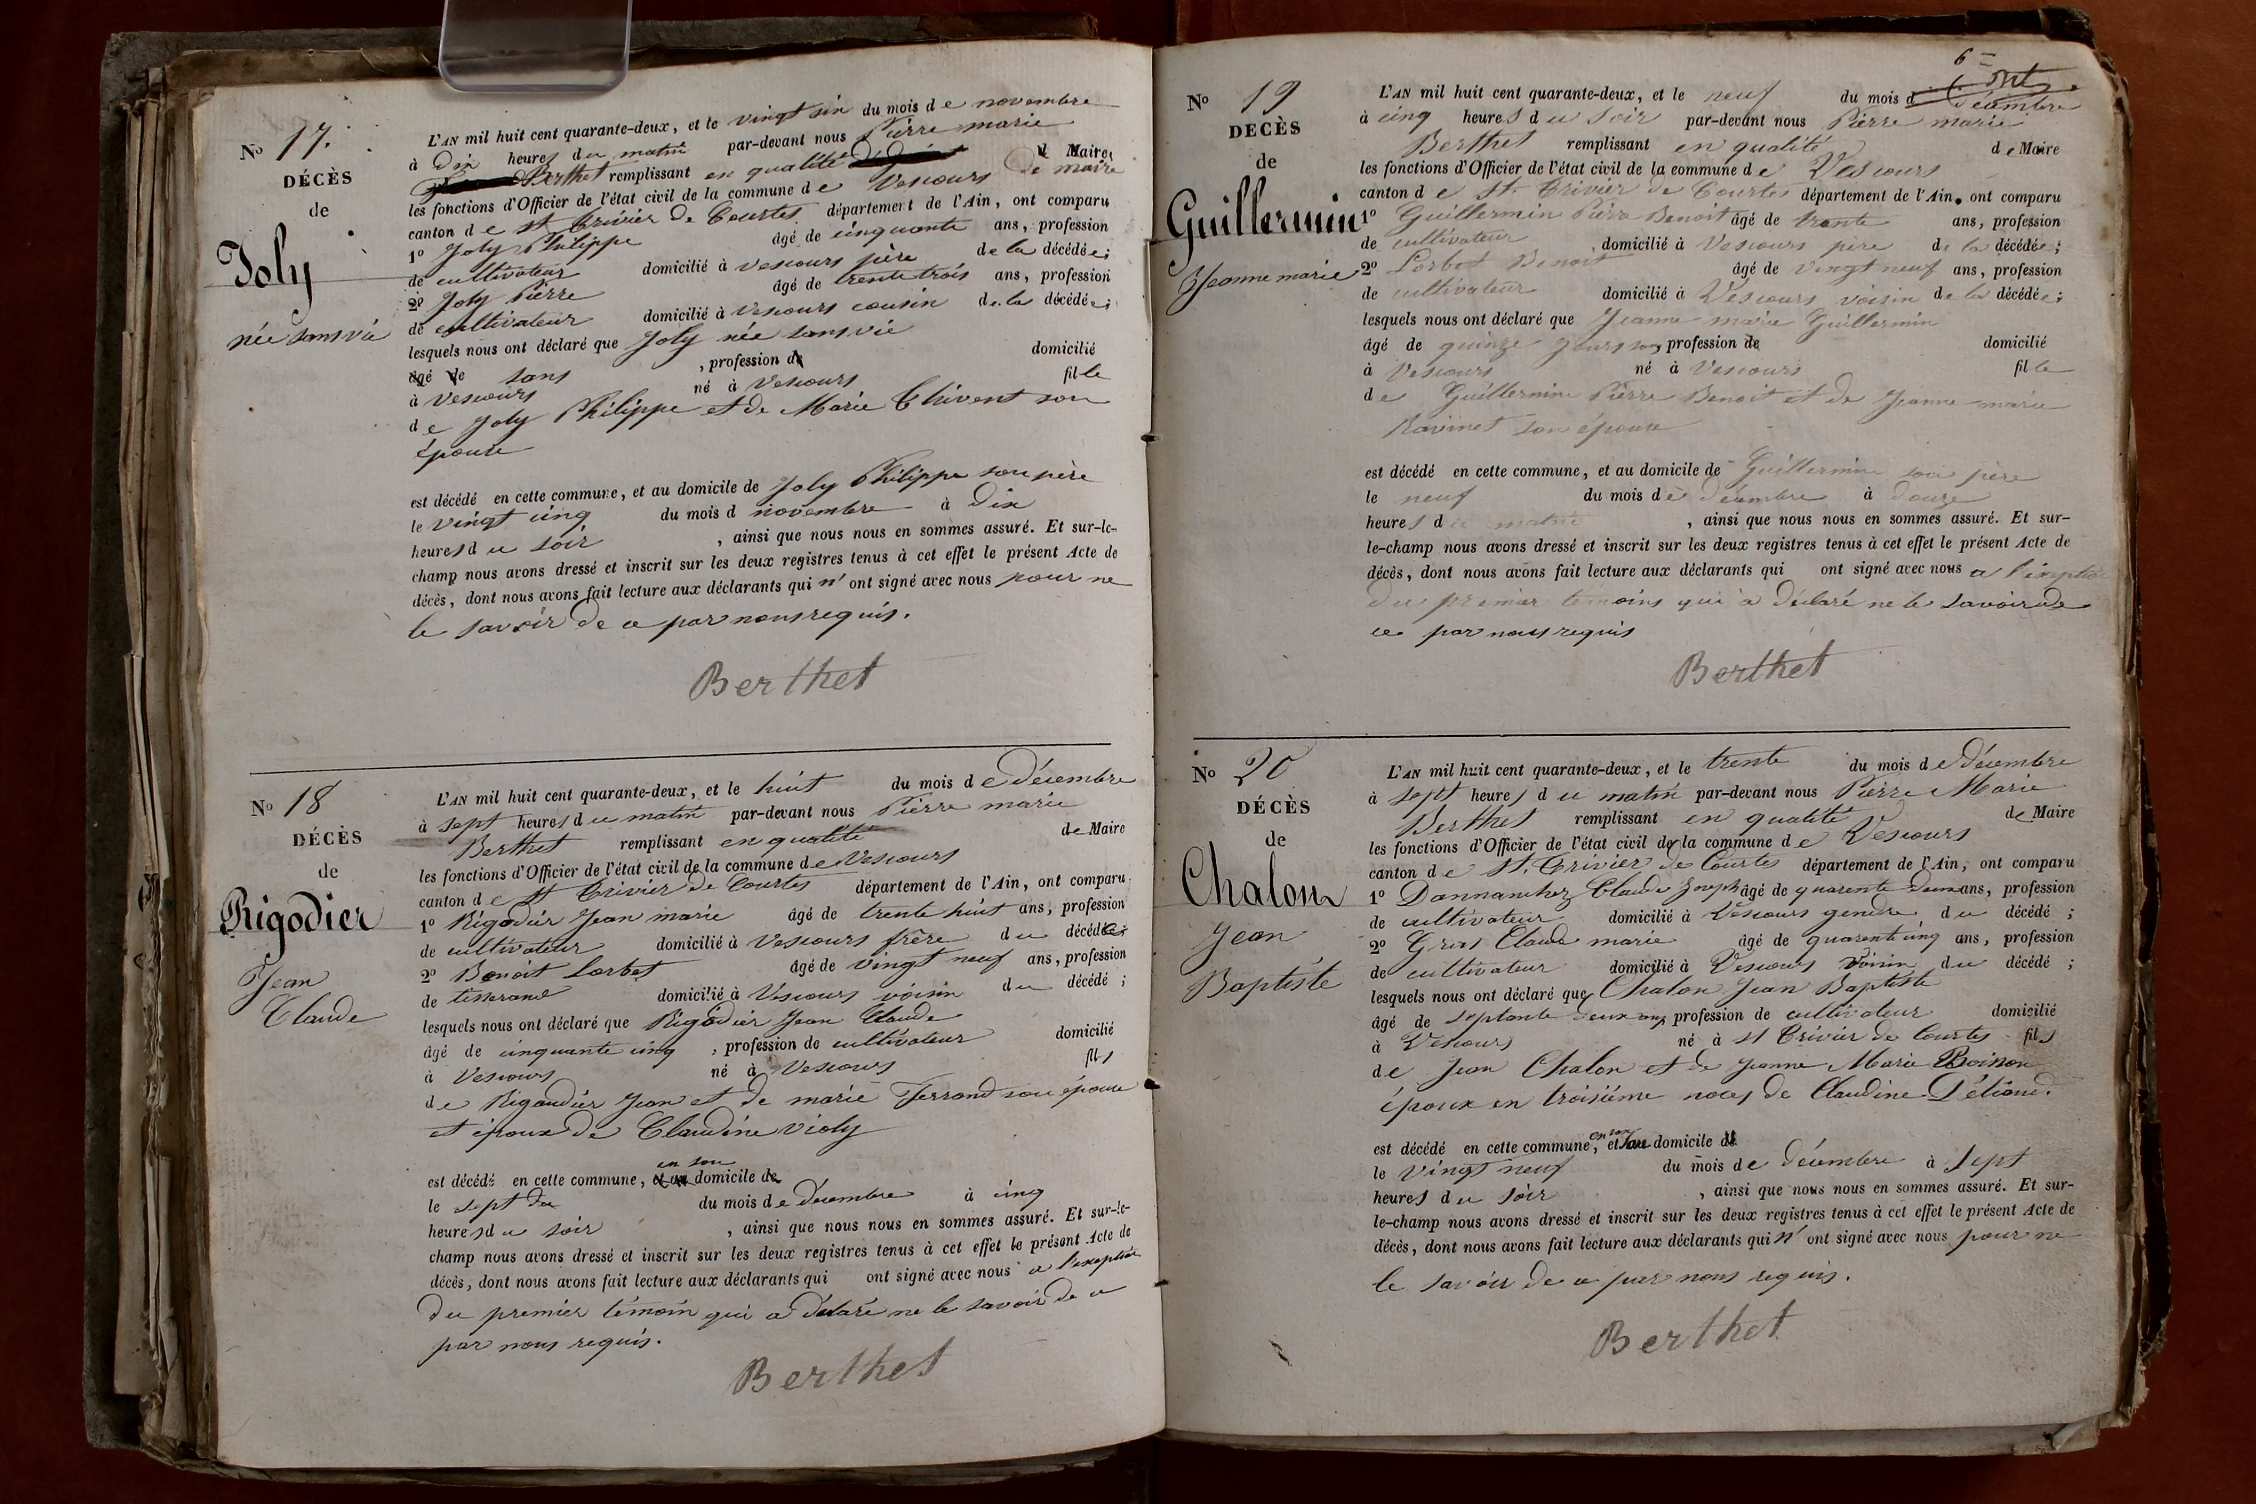 No 17.
DÉCÈS
de
Joly
née sans vie
L'AN mil huit cent quarante-deux, et le vingt six du mois de novembre
à dix heures du matin par-devant nous Pierre marie
Berthet remplissant en qualité d Maire
de maire
les fonctions d'Officier de l'état civil de la commune de Vescours
canton de St Trivier de Courtes département de l'Ain, ont comparu
1o Joly Philippe âgé de cinquante ans, profession
de cultivateur domicilié à Vescours père de la décédée;
2o Joly Pierre âgé de trente trois ans, profession
de cultivateur domicilié à Vescours cousin de la décédée;
lesquels nous ont déclaré que Joly née sans vie
âgé de sans , profession de domicilié
à Vescours né à Vescours fille
de Joly Philippe et de Marie Thivent son
épouse
est décédé en cette commune, et au domicile de Joly Philippe son père
le vingt cinq du mois d novembre à dix
heures du soir , ainsi que nous nous en sommes assuré. Et sur-le-
champ nous avons dressé et inscrit sur les deux registres tenus à cet effet le présent Acte de
décès, dont nous avons fait lecture aux déclarants qui n' ont signé avec nous pour ne
le savoir de ce par nous requis.
Berthet
No 18
DÉCÈS
de
Rigodier
Jean
Claude
L'AN mil huit cent quarante-deux, et le huit du mois de Décembre
à sept heures du matin par-devant nous Pierre marie
Berthet remplissant en qualité de Maire
les fonctions d'Officier de l'état civil de la commune de Vescours
canton de St Trivier de Courtes département de l'Ain, ont comparu
1o Rigodier Jean marie âgé de trente huit ans, profession
de cultivateur domicilié à Vescours frère du décédé;
2o Benoit Lorbet âgé de vingt neuf ans, profession
de tisserand domicilié à Vescours voisin du décédé;
lesquels nous ont déclaré que Rigodier Jean Claude
âgé de cinquante cinq , profession de cultivateur domicilié
à Vescours né à Vescours fils
de Rigaudier Jean et de marie Ferrand son épouse
et époux de Claudine Violy
en son
est décédé en cette commune, et au domicile de
le sept du du mois de Décembre à cinq
heures du soir , ainsi que nous nous en sommes assuré. Et sur-le-
champ nous avons dressé et inscrit sur les deux registres tenus à cet effet le présent Acte de
décès, dont nous avons fait lecture aux déclarants qui ont signé avec nous a l'exception
du premier témoin qui a déclaré ne le savoir de ce
par nous requis.
Berthet
6e
No 19
DECÈS
de
Guillermin
Jeanne marie
L'AN mil huit cent quarante-deux, et le neuf du mois d Décembre
à cinq heures du soir par-devant nous Pierre marie
Berthet remplissant en qualité de Maire
les fonctions d'Officier de l'état civil de la commune de Vescours
canton de St Trivier de Courtes département de l'Ain, ont comparu
1o Guillermin Pierre Benoit âgé de trente ans, profession
de cultivateur , domicilié à Vescours père de la décédée;
2o Lorbet Benoit âgé de vingt neuf ans, profession
de cultivateur domicilié à Vescours voisin de la décédée;
lesquels nous ont déclaré que Jeanne marie Guillermin
âgé de quinze jours profession de domicilié
à Vescours né à Vescours fille
de Guillermin Pierre Benoit et de Jeanne marie
Ravinet son épouse
est décédé en cette commune, et au domicile de Guillermin son père
le neuf du mois de Décembre à douze
heures du matin , ainsi que nous nous en sommes assuré. Et sur-
le-champ nous avons dressé et inscrit sur les deux registres tenus à cet effet le présent Acte de
décès, dont nous avons fait lecture aux déclarants qui ont signé avec nous a l'exception
du premier témoins qui a déclaré ne le savoir de
ce par nous requis
Berthet
No 20
DÉCÈS
de
Chalon
Jean
Baptiste
L'AN mil huit cent quarante-deux, et le trente du mois de Décembre
à sept heures du matin par-devant nous Pierre Marie
Berthet remplissant en qualité de Maire
les fonctions d'Officier de l'état civil de la commune de Vescours
canton de St. Trivier de Courtes département de l'Ain, ont comparu
1o Dannanchez Claude Joseph âgé de quarente deux ans, profession
de cultivateur domicilié à Vescours gendre du décédé ;
2o Gras Claude marie âgé de quarente cinq ans, profession
de cultivateur domicilié à Vescours Voisin du décédé ;
lesquels nous ont déclaré que Chalon Jean Baptiste
âgé de septante deux ans profession de cultivateur domicilié
à Vescours né à St Trivier de Courtes fils
de Jean Chalon et de Jeanne Marie Boisson
époux en troisième noces de Claudine
en son
est décédé en cette commune, et au domicile d
le vingt neuf du mois de Décembre à sept
heures du soir , ainsi que nous nous en sommes assuré. Et sur-
le-champ nous avons dressé et inscrit sur les deux registres tenus à cet effet le présent Acte de
décès, dont nous avons fait lecture aux déclarants qui n' ont signé avec nous pour ne
le savoir de ce par nous requis.
Berthet